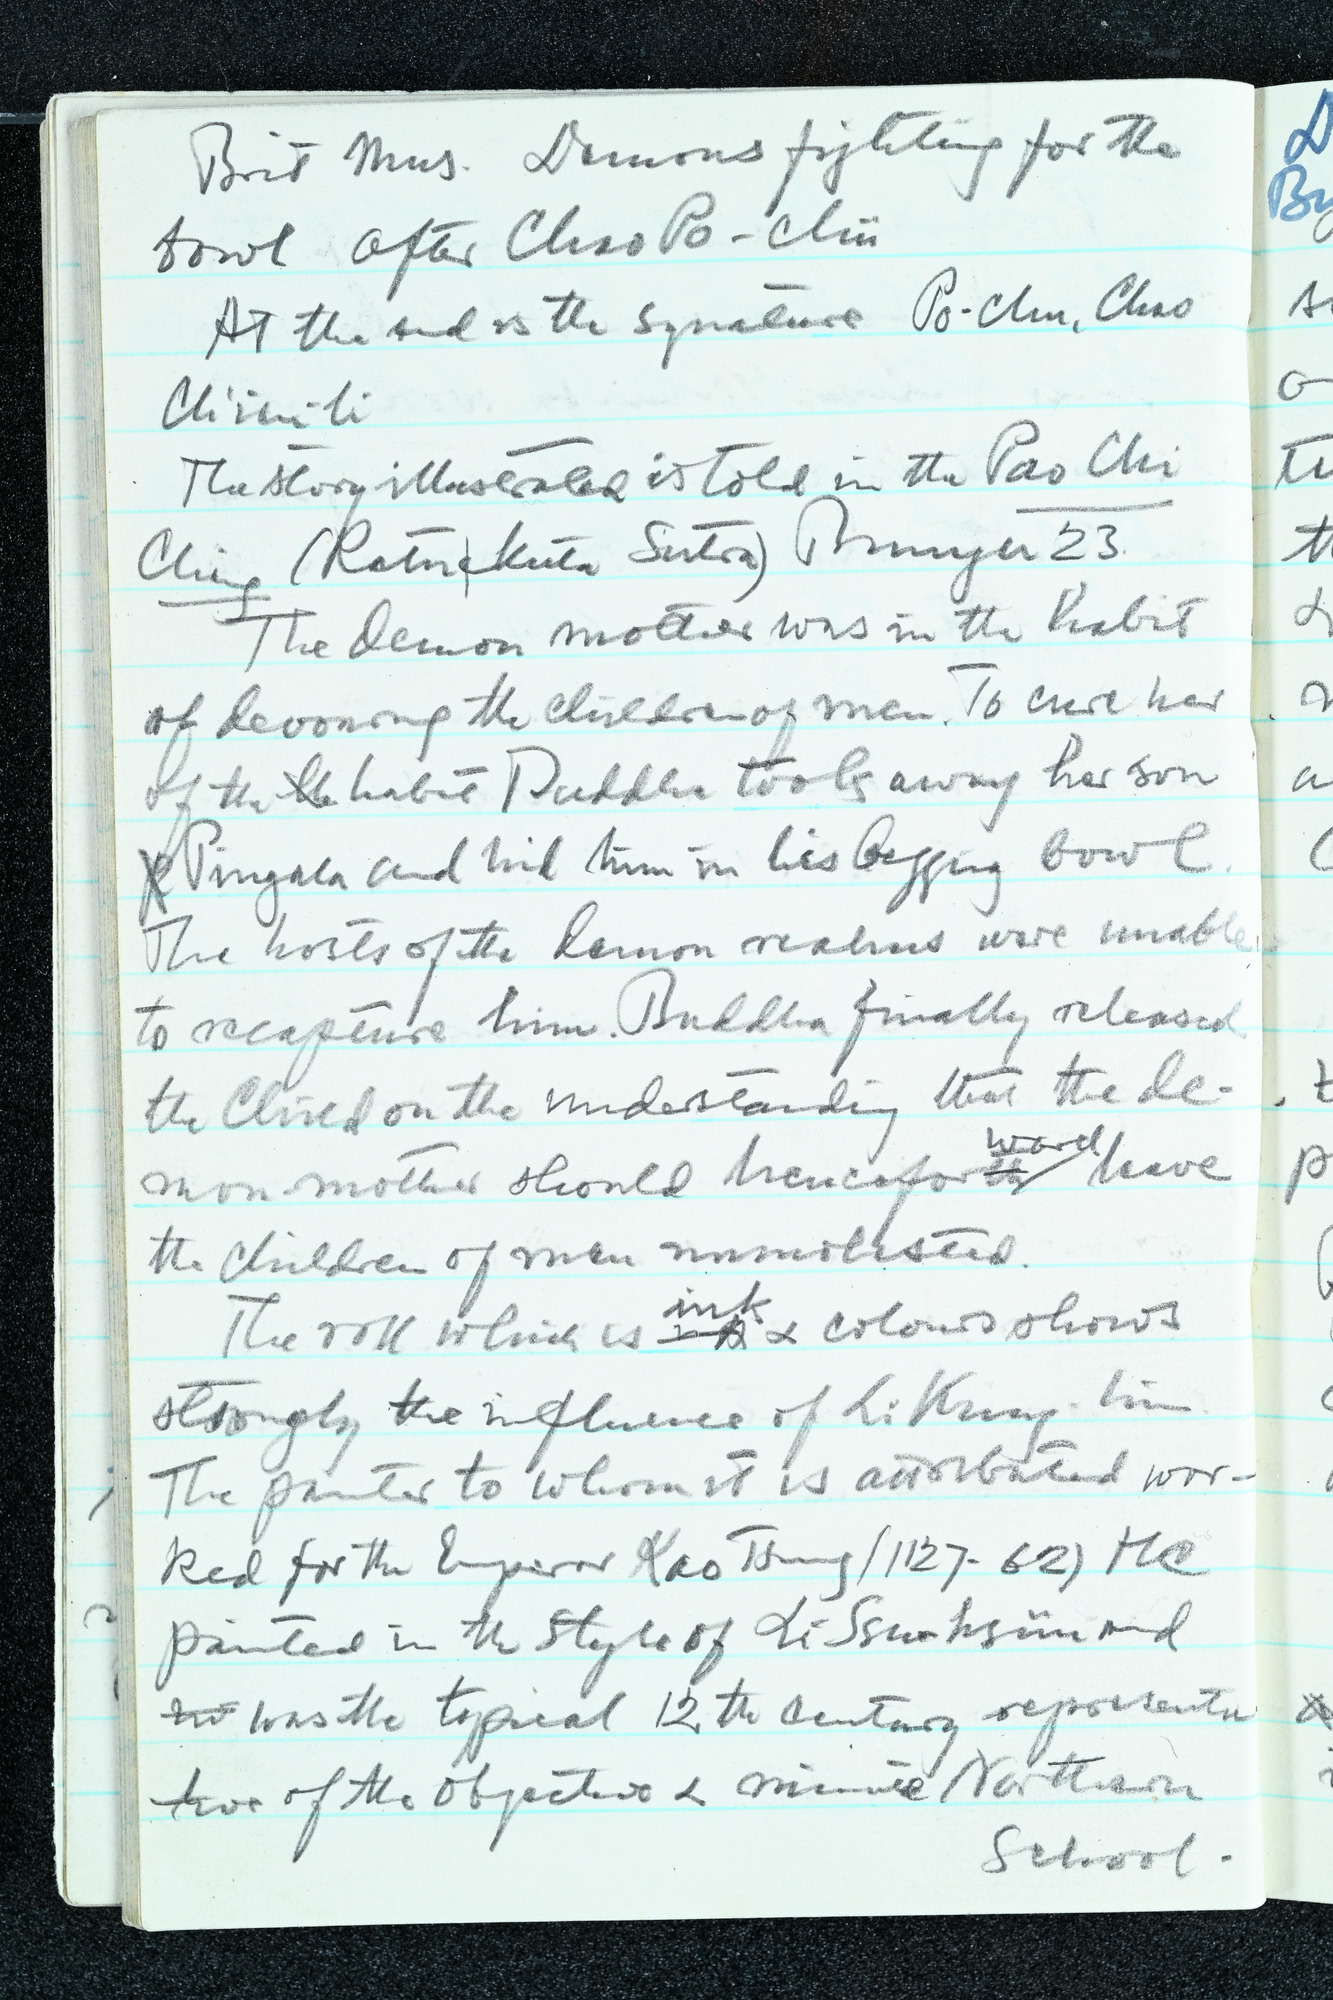 Brit Mus. Demons fighting for the
bowl after Chao Po-chü
At the end is the signature Po-chu, Chao
Ch'ien-li
The story illustrated is told in the Pao Chi
Ching (Ratnakuta Sutra) Bunyiu 23.
The demon mother was in the habit
of devouring the children of men. To cure her
of the habit Buddha took away her son
Pingala and hid him in his begging bowl.
The hosts of the demon realms were unable
to recapture him. Buddha finally released
the child on the understanding that the de-
mon-mother should henceforward leave
the children of men unmolested.
The roll which is ink & colours shows
strongly the influence of Li Kung-lin.
The painter to whom it is attributed wor-
ked for the Emperor Kao Tsung (1127-62) He
painted in the style of Li Ssu-hsün and
was the typical 12th century representa
tive of the objective & minute Northern
School-